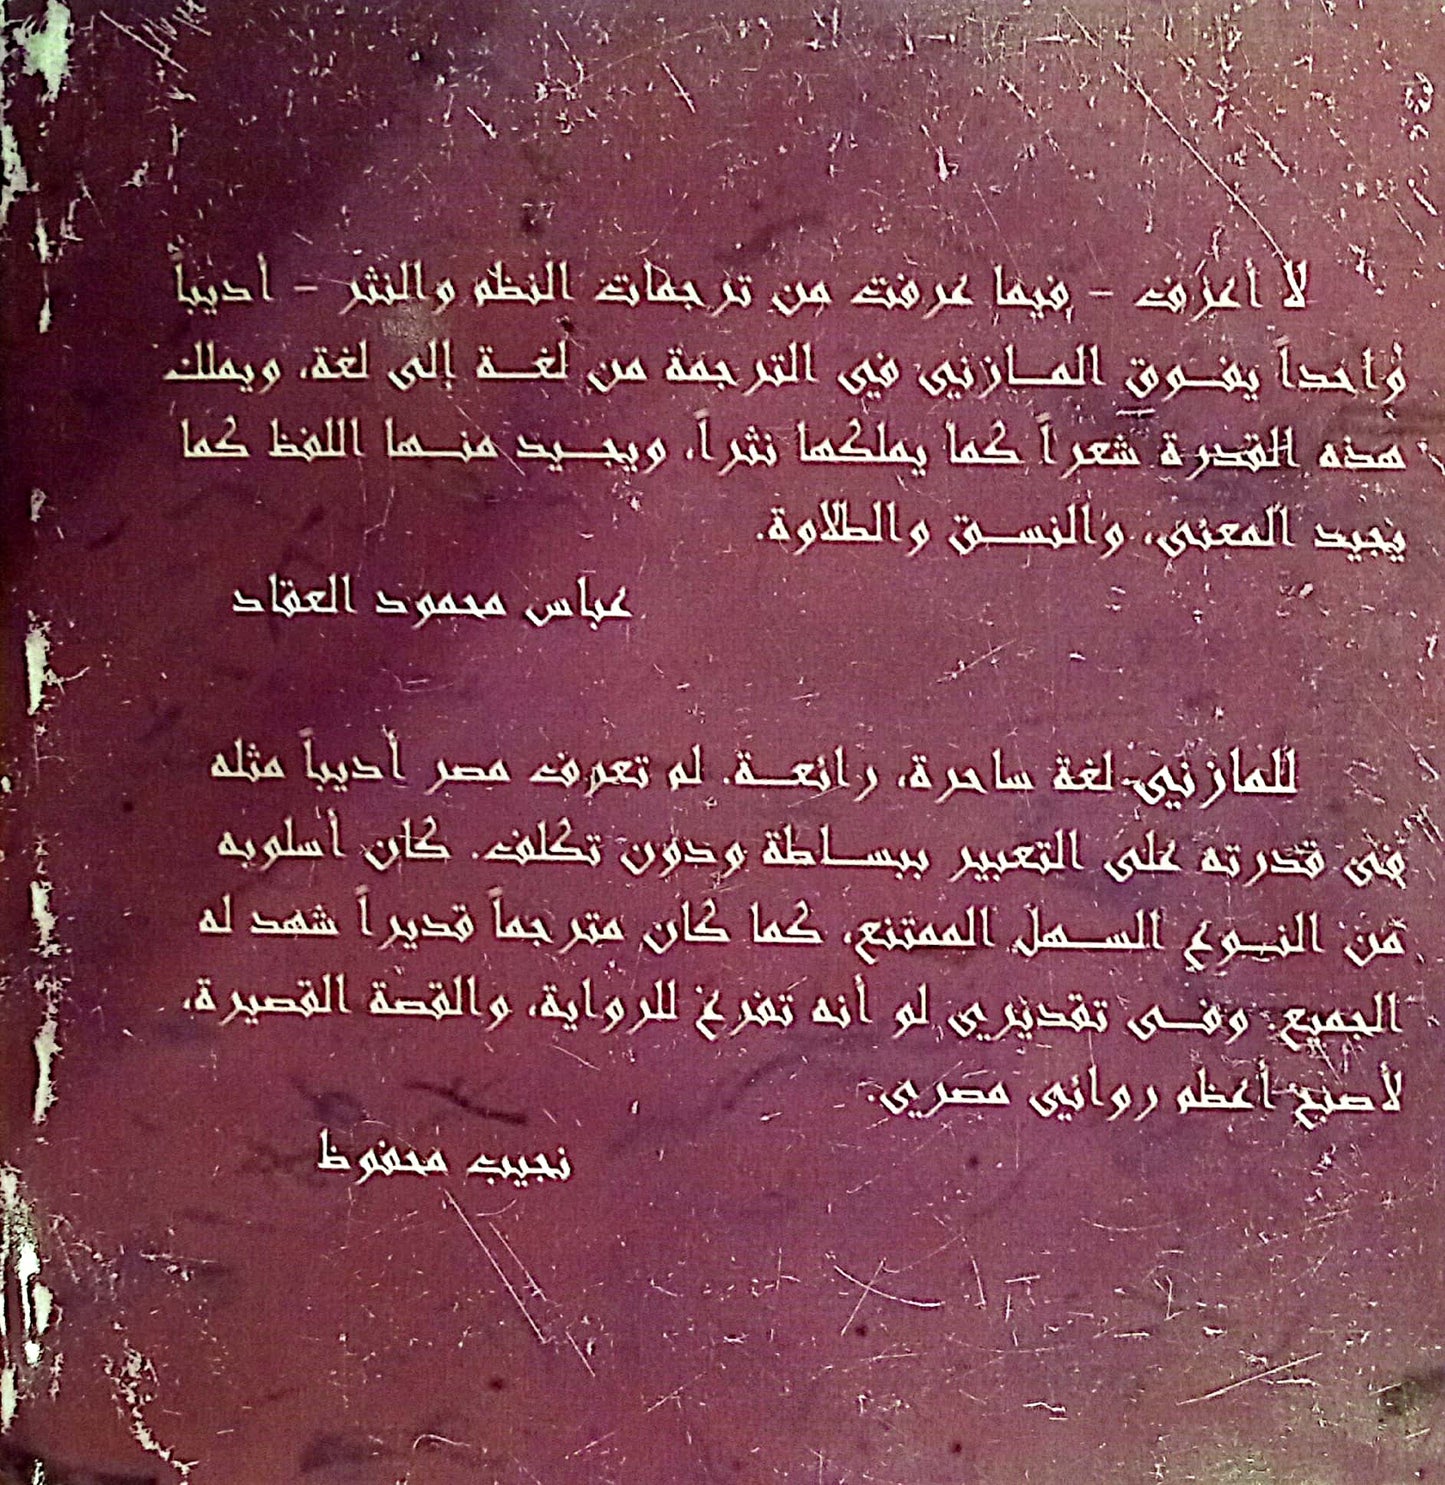 لا أعرف - فيما عرفت من ترجمات النظم والنثر - أديباً
واحداً يفوق المازني في الترجمة من لغة إلى لغة، ويملك
هذه القدرة شعراً كما يملكها نثراً، ويجيد منها اللفظ كما
يجيد المعنى، والنسق والطلاوة.
عباس محمود العقاد
للمازني لغة ساحرة، رائعة. لم تعرف مصر أديباً مثله
فى قدرته على التعبير ببساطة ودون تكلف. كان أسلوبه
من النوع السهل الممتنع، كما كان مترجماً قديراً شهد له
الجميع. وفى تقديرى لو أنه تفرغ للرواية، والقصة القصيرة،
لأصبح أعظم روائي مصري.
نجيب محفوظ